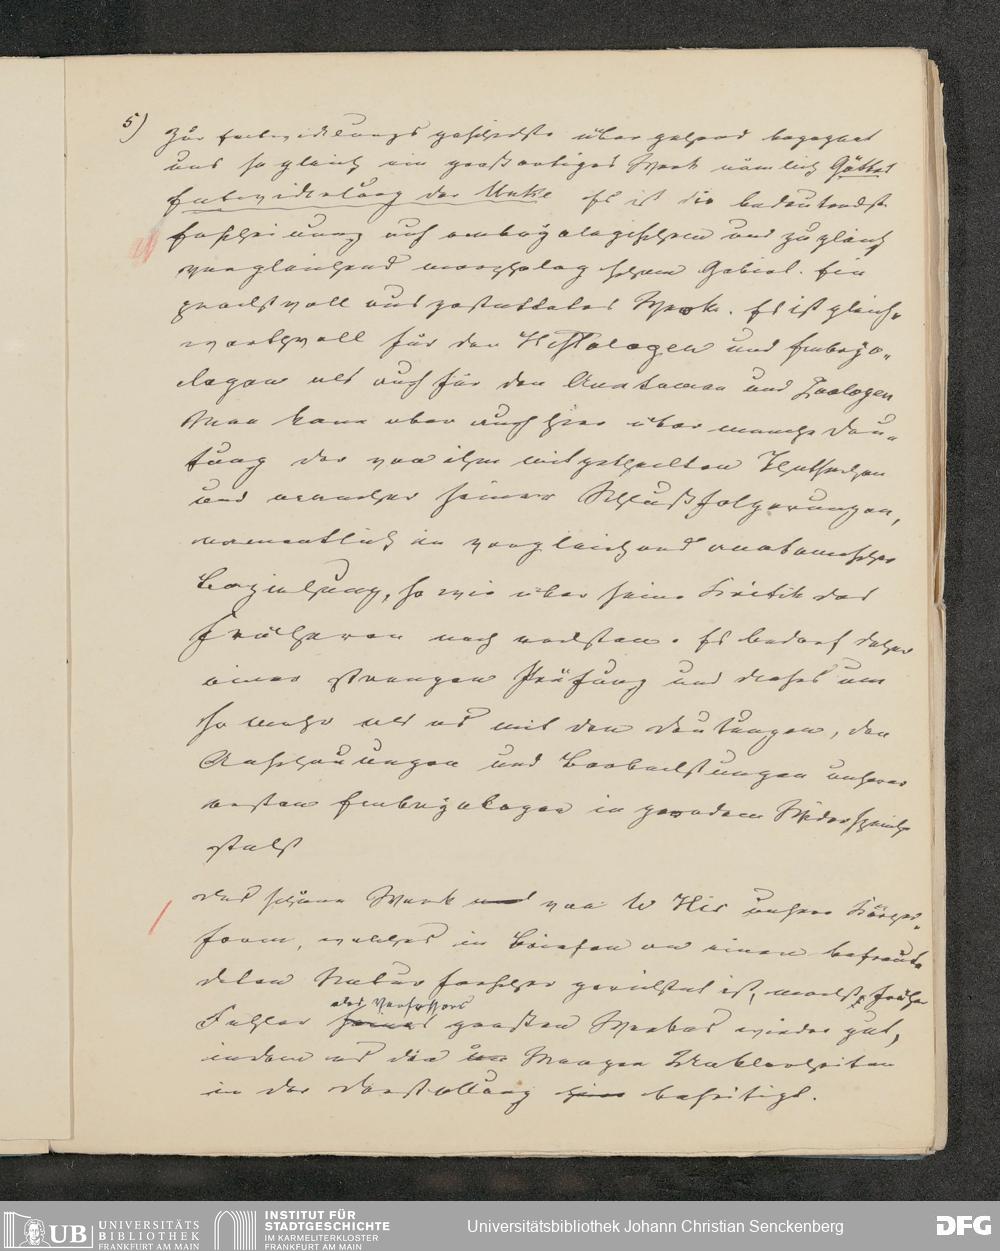 5) Zur Entwickelungsgeschichte übergehend begegnet
uns sogleich ein großartiges Werk nämlich Göttes
Entwickelung der Unke Es ist die bedeutendste
Erscheinung auf embryologischem und zugleich
vergleichend morphologischem Gebiet. Ein
prachtvoll ausgestattetes Werk. Es ist gleich-
werthvoll für den Histologen und Embryo-
logen als auch für den Anatomen und Zoologen
Man kann aber auch hier über manche Deu-
tung der von ihm mitgetheilten Thatsachen
und mancher seiner Schlußfolgerungen,
namentlich in vergleichend anatomischer
Beziehung, so wie über seine Kritik des
Früheren noch rechten. Es bedarf daher
einer strengen Prüfung und dieses um
so mehr als es mit den Deutungen, den
Anschauungen und Beobachtungen unserer
ersten Embryologen in geradem Widerspruche
steht
Das schöne Werk von W His unsere Körper-
form, welches in Briefen an einen befreun-
deten Naturforscher gerichtet ist, macht frühere
Fehler des Verfassers großen Werkes wieder gut,
indem es die Mangen Unklarheiten
in der Darstellung beseitigt.
UB UNIVERSITÄTS
BIBLIOTHEK
FRANKFURT AM MAIN
INSTITUT FÜR
STADTGESCHICHTE
IM KARMELITERKLOSTER
FRANKFURT AM MAIN
Universitätsbibliothek Johann Christian Senckenberg
DFG